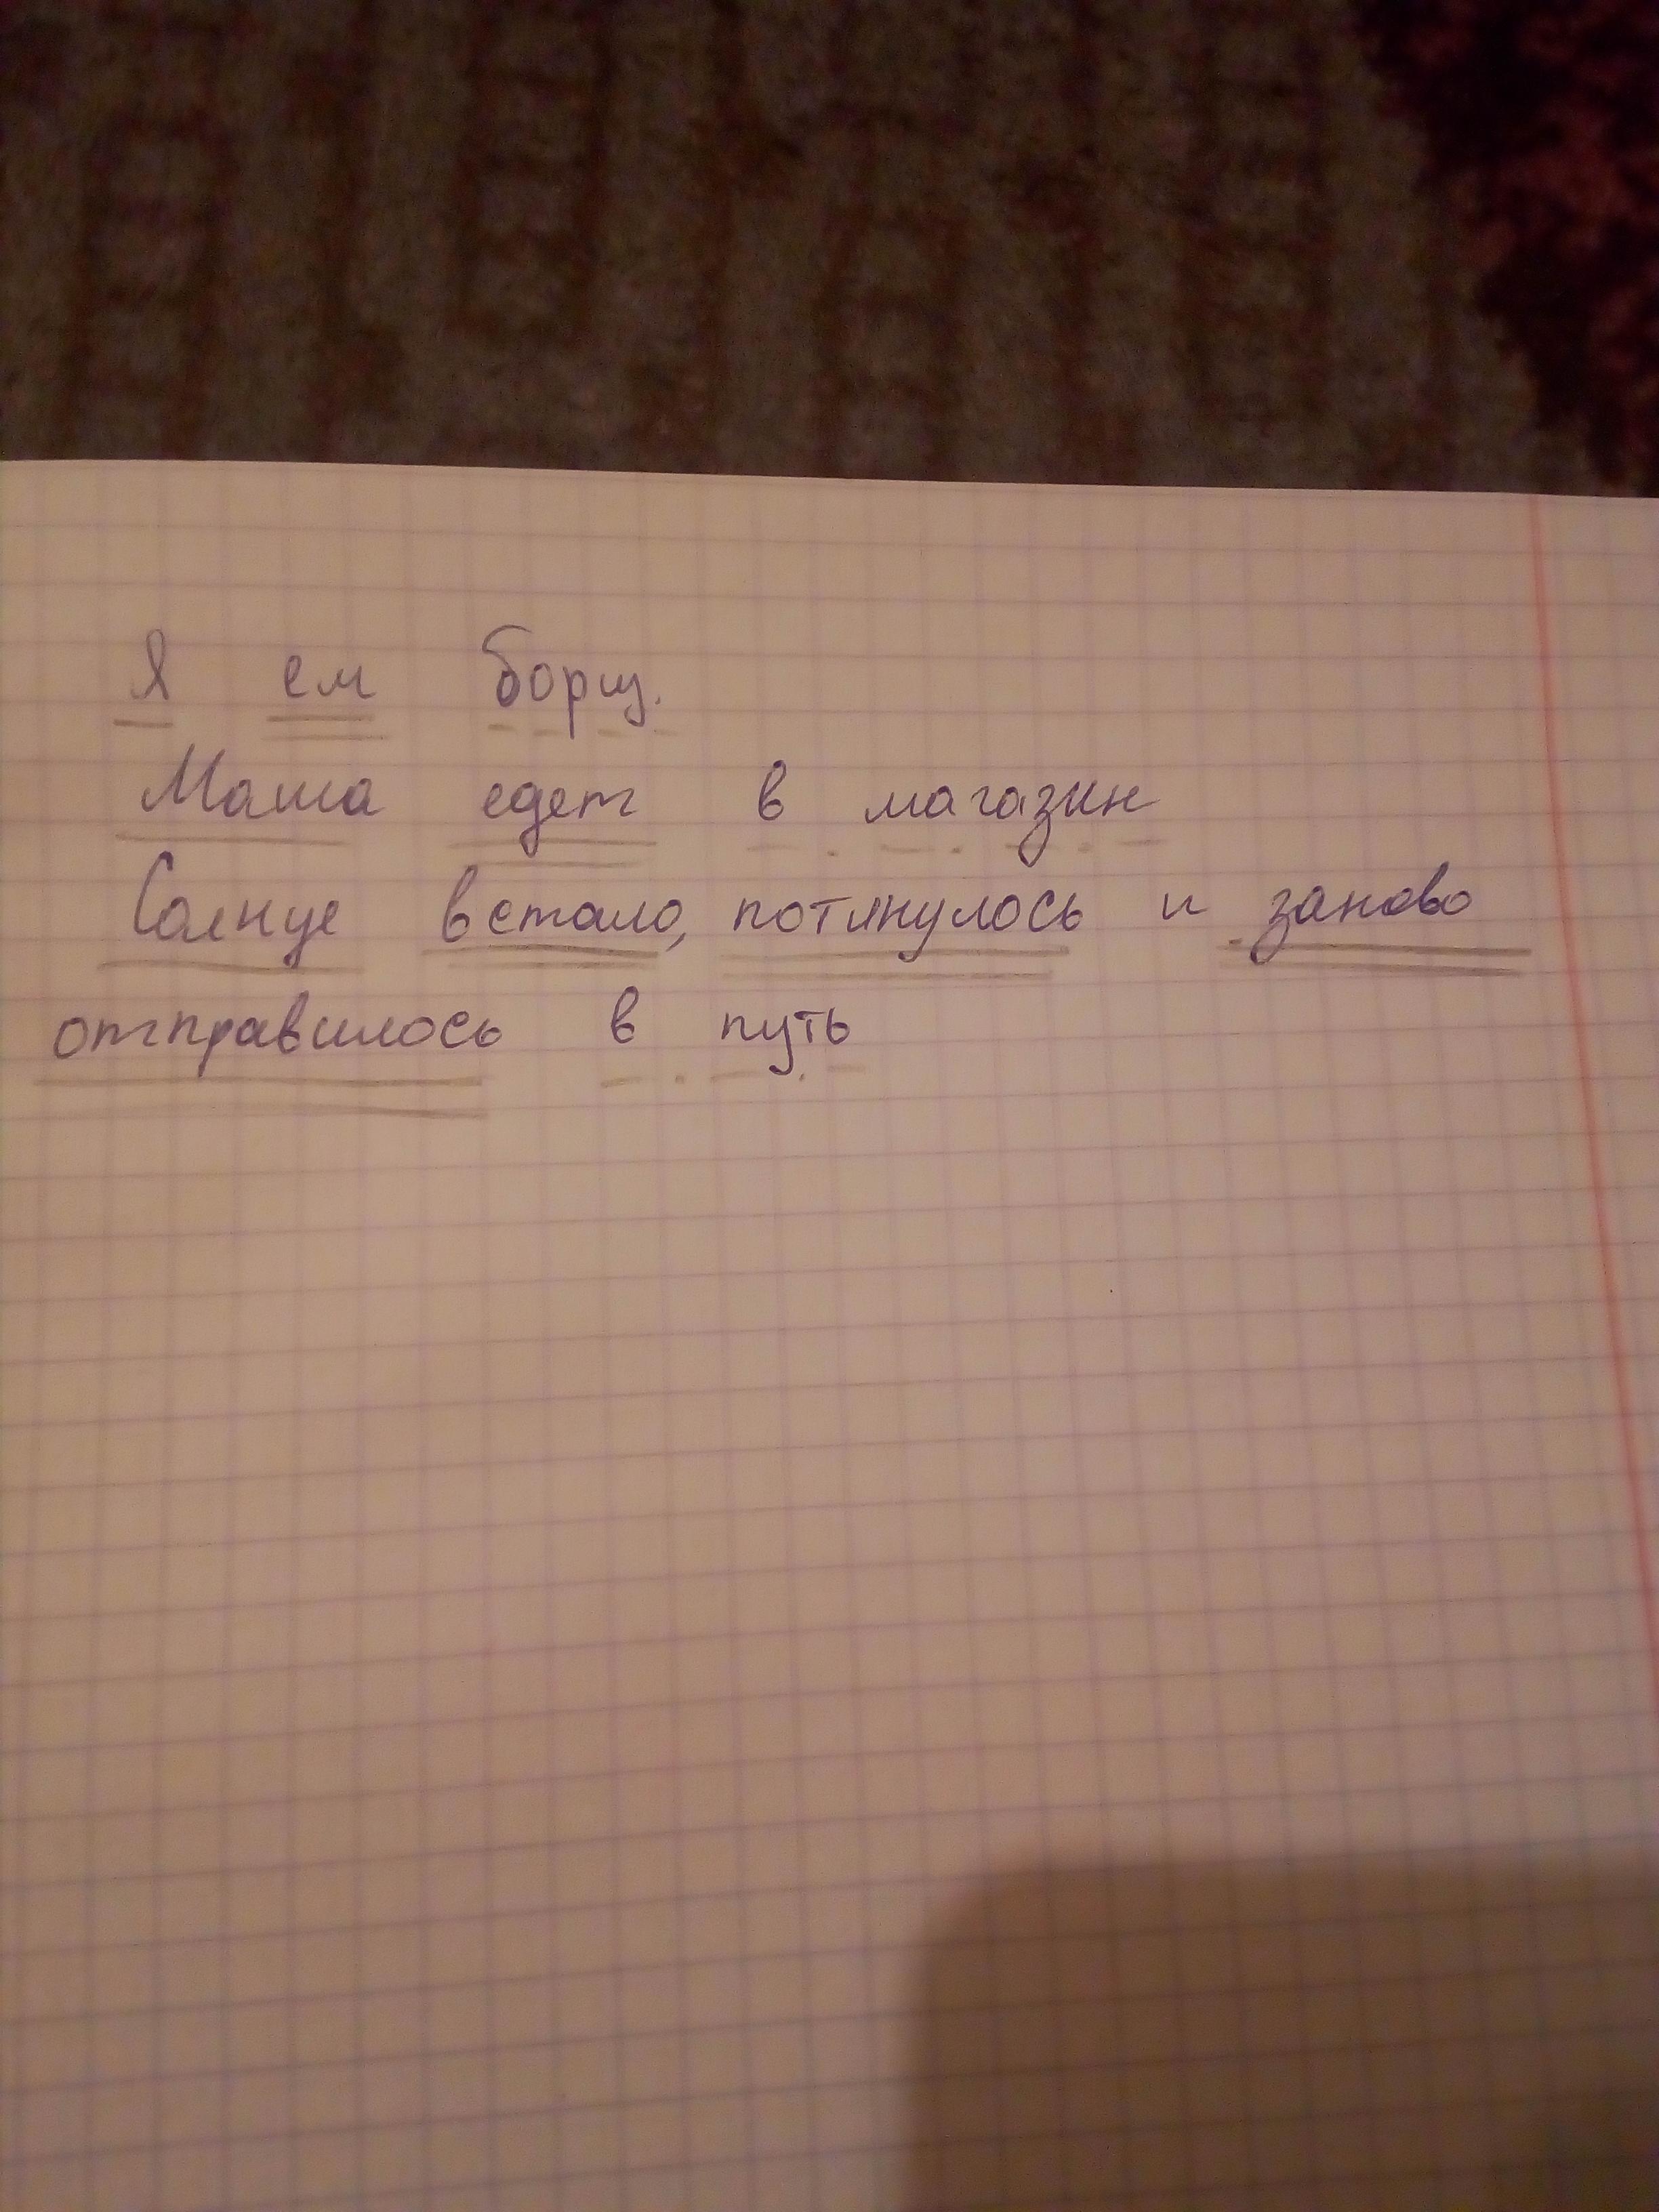 Я ем борщ.
Маша едет в магазин
Солнце встало, потянулось и заново
отправилось в путь